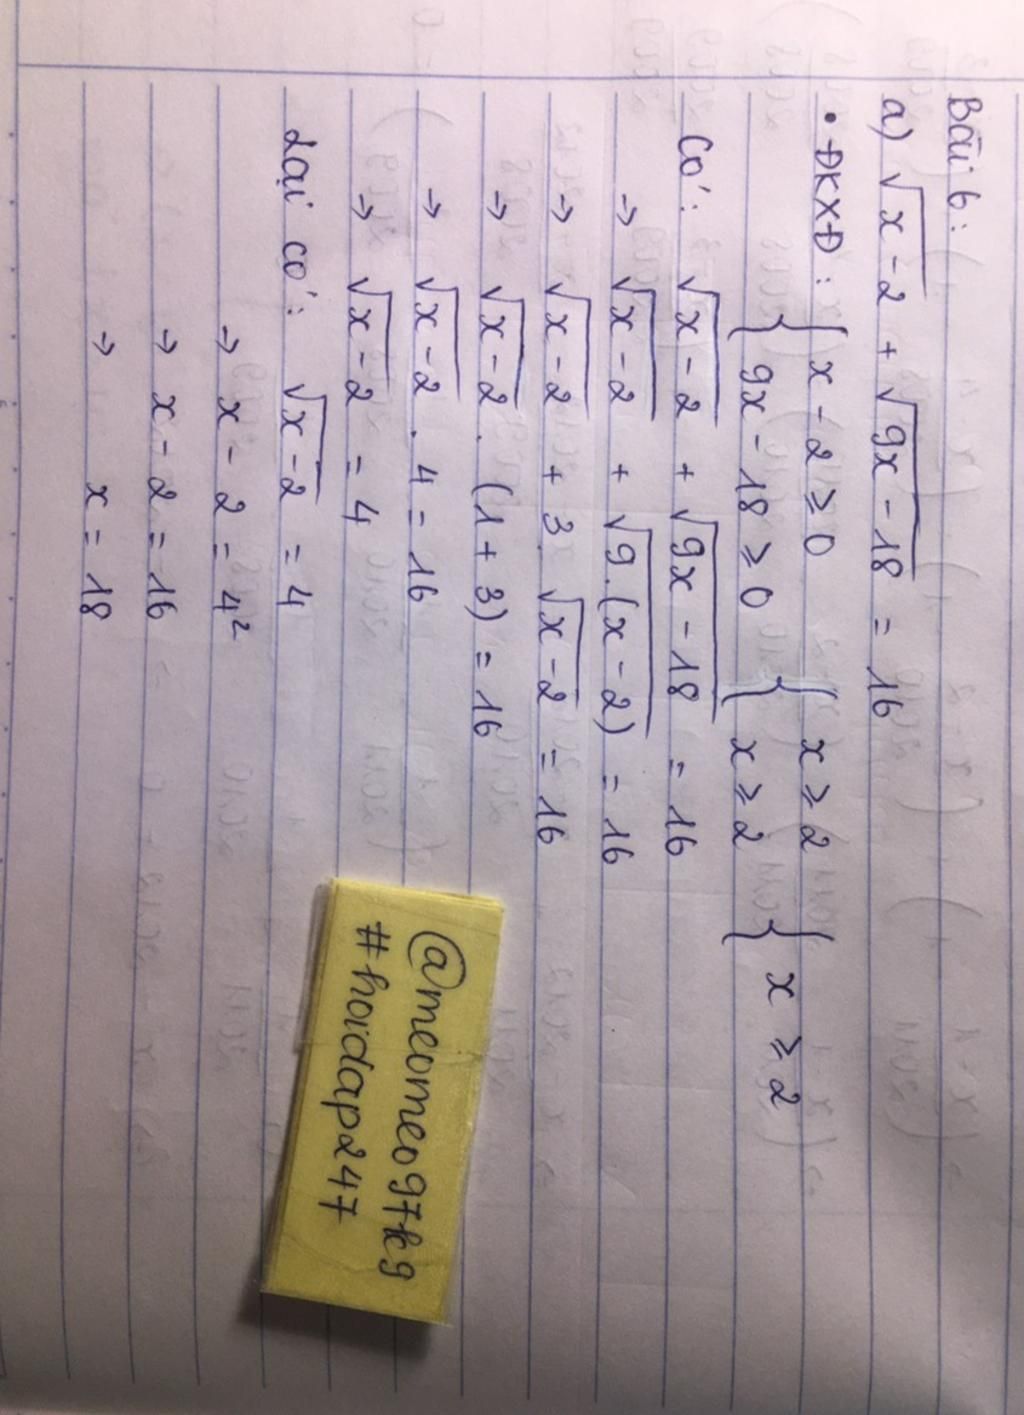 Bài 6:
a) √x-2 + √9x-18 = 16
• ĐKXĐ: { x-2 ≥ 0 { x ≥ 2 { x ≥ 2
9x-18 ≥ 0 x ≥ 2
Có: √x-2 + √9x-18 = 16
→ √x-2 + √9.(x-2) = 16
→ √x-2 + 3 √x-2 = 16
→ √x-2 . (1+3) = 16
→ √x-2 . 4 = 16
→ √x-2 = 4
Lại có: √x-2 = 4
→ x-2 = 4²
→ x-2 = 16
→ x = 18
@meomeo97kg
#hoidap247